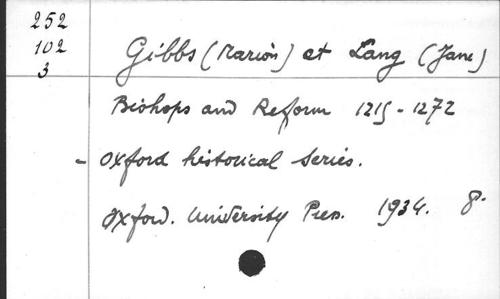 252
102
3
Gibbs (Marion) et Lang (Jane)
Bishops and Reform 1215-1272
- Oxford historical Series.
Oxford. University Press. 1934. 8°